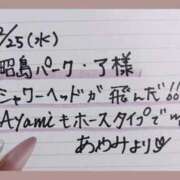 2/25(水)
昭島パーク・了様
シャワーヘッドが飛んだ!!
Ayamiもホースタイプで
あやみより♡